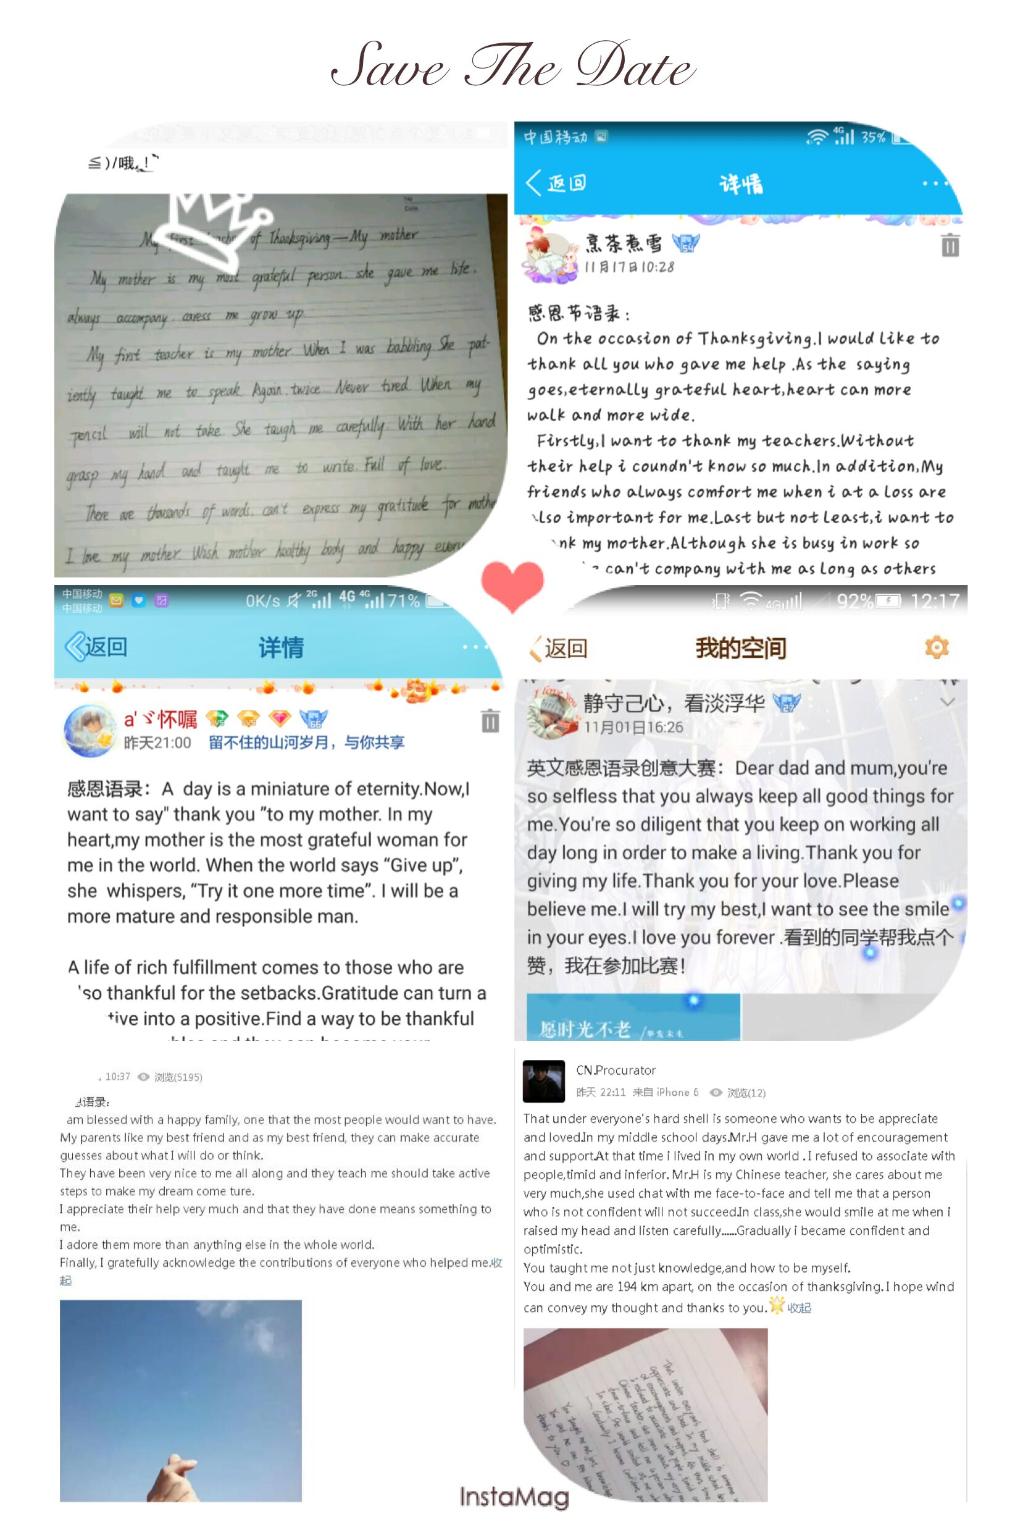 Save The Date
≦)/哦，!
My first teacher of Thanksgiving—My mother
My mother is my most grateful person. she gave me life.
always accompany. caress me grow up
My first teacher is my mother When I was babbling She pat-
iently taught me to speak Again twice Never tired When my
pencil will not take. She taugh me carefully. With her hand
grasp my hand and taught me to write. Full of love.
There are thousands of words. can't express my gratitude for mothe
I love my mother Wish mother healthy body and happy every
中国移动 4G 35%
返回 详情 ...
烹茶煮雪
11月17日10:28
感恩节语录：
On the occasion of Thanksgiving.I would like to
thank all you who gave me help .As the saying
goes,eternally grateful heart,heart can more
walk and more wide.
Firstly,I want to thank my teachers.Without
their help i coundn't know so much.In addition,My
friends who always comfort me when i at a loss are
lso important for me.Last but not least,i want to
nk my mother.Although she is busy in work so
can't company with me as long as others
中国移动
中国移动 0K/s 2G 4G 4G 71%
返回 详情 ...
a'ヾ怀嘱
昨天21:00 留不住的山河岁月，与你共享
感恩语录：A day is a miniature of eternity.Now,I
want to say" thank you "to my mother. In my
heart,my mother is the most grateful woman for
me in the world. When the world says “Give up”,
she whispers, “Try it one more time”. I will be a
more mature and responsible man.
A life of rich fulfillment comes to those who are
so thankful for the setbacks.Gratitude can turn a
tive into a positive.Find a way to be thankful
4G 92% 12:17
返回 我的空间
静守己心，看淡浮华
11月01日16:26
英文感恩语录创意大赛：Dear dad and mum,you're
so selfless that you always keep all good things for
me.You're so diligent that you keep on working all
day long in order to make a living.Thank you for
giving my life.Thank you for your love.Please
believe me.I will try my best,I want to see the smile
in your eyes.I love you forever .看到的同学帮我点个
赞，我在参加比赛！
愿时光不老
10:37 浏览(5195)
语录：
am blessed with a happy family, one that the most people would want to have.
My parents like my best friend and as my best friend, they can make accurate
guesses about what I will do or think.
They have been very nice to me all along and they teach me should take active
steps to make my dream come ture.
I appreciate their help very much and that they have done means something to
me.
I adore them more than anything else in the whole world.
Finally, I gratefully acknowledge the contributions of everyone who helped me.收
起
CN.Procurator
昨天 22:11 来自 iPhone 6 浏览(12)
That under everyone's hard shell is someone who wants to be appreciate
and loved.In my middle school days.Mr.H gave me a lot of encouragement
and support.At that time i lived in my own world . I refused to associate with
people,timid and inferior. Mr.H is my Chinese teacher, she cares about me
very much,she used chat with me face-to-face and tell me that a person
who is not confident will not succeed.In class,she would smile at me when i
raised my head and listen carefully......Gradually i became confident and
optimistic.
You taught me not just knowledge,and how to be myself.
You and me are 194 km apart, on the occasion of thanksgiving. I hope wind
can convey my thought and thanks to you. 收起
InstaMag